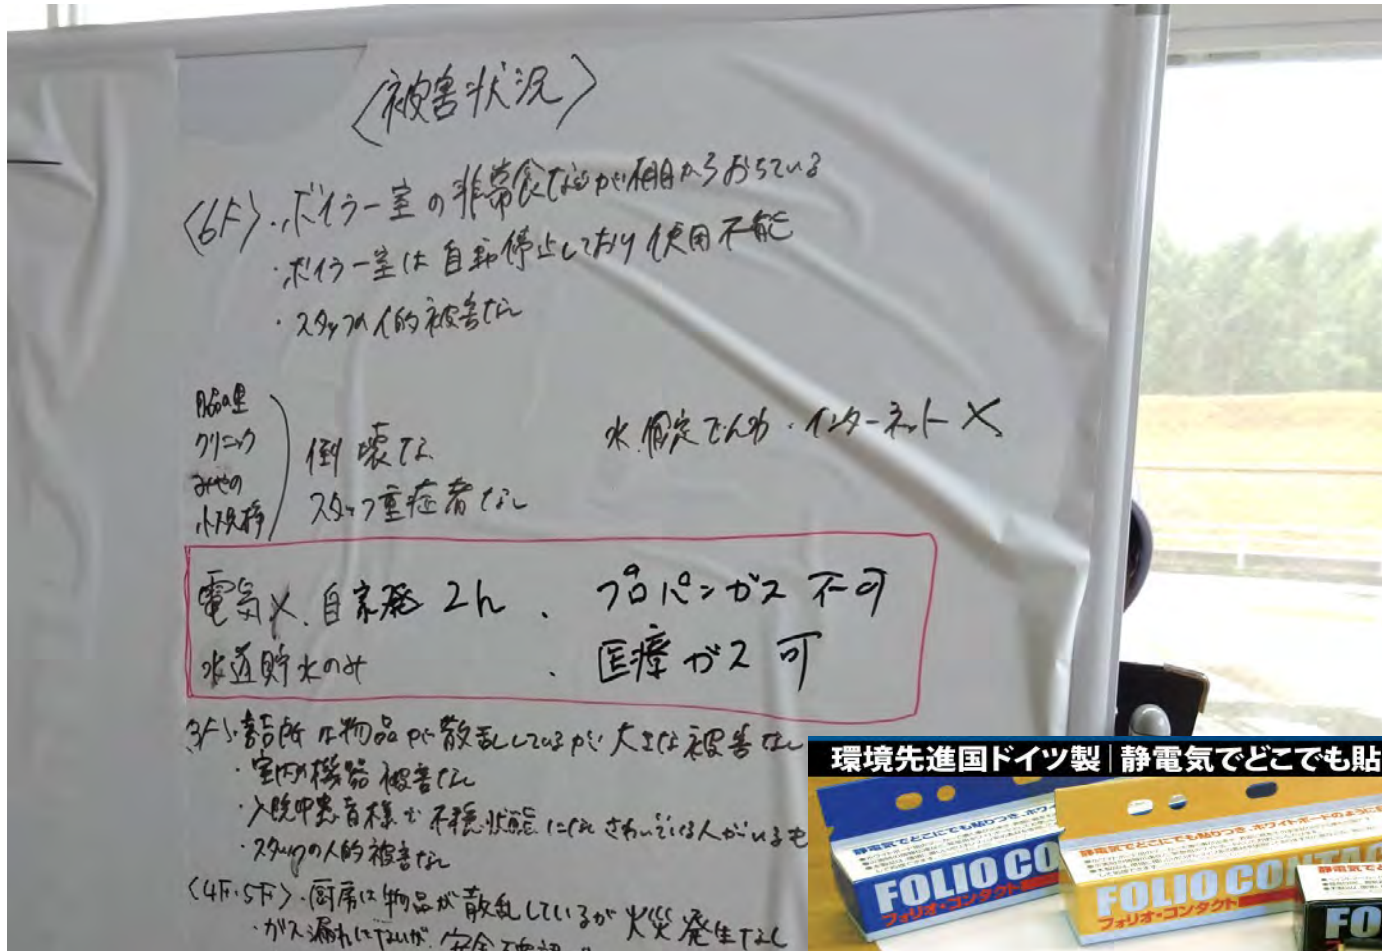 〈被害状況〉
〈6F〉・ボイラー室の非常食などが棚からおちている
・ボイラー室は自動停止しており使用不能
・スタッフの人的被害なし
クリニック
倒壊な
スタッフ重症者なし
水.固定でんわ・インターネット ×
電気×.自家発 2h
・プロパンガス 不可
水道貯水のみ
・医療ガス 可
3F〉・詰所は物品が散乱しているが大きな被害なし
・室内の機器被害なし
・入院中患者様で不穏状態になれさわいでいる人がいるも
・スタッフの人的被害なし
〈4F・5F〉・厨房は物品が散乱しているが火災発生なし
・ガス漏れはないが.安全確認
環境先進国ドイツ製|静電気でどこでも貼
静電気でどこにでも貼りつき、ホワイ
FOLIO CO
フォリオ・コンタクト
静電気でどこにでも貼りつき、ホワイトボードのように
FOLIO CONTAC
フォリオ・コンタクト
FO
フォ